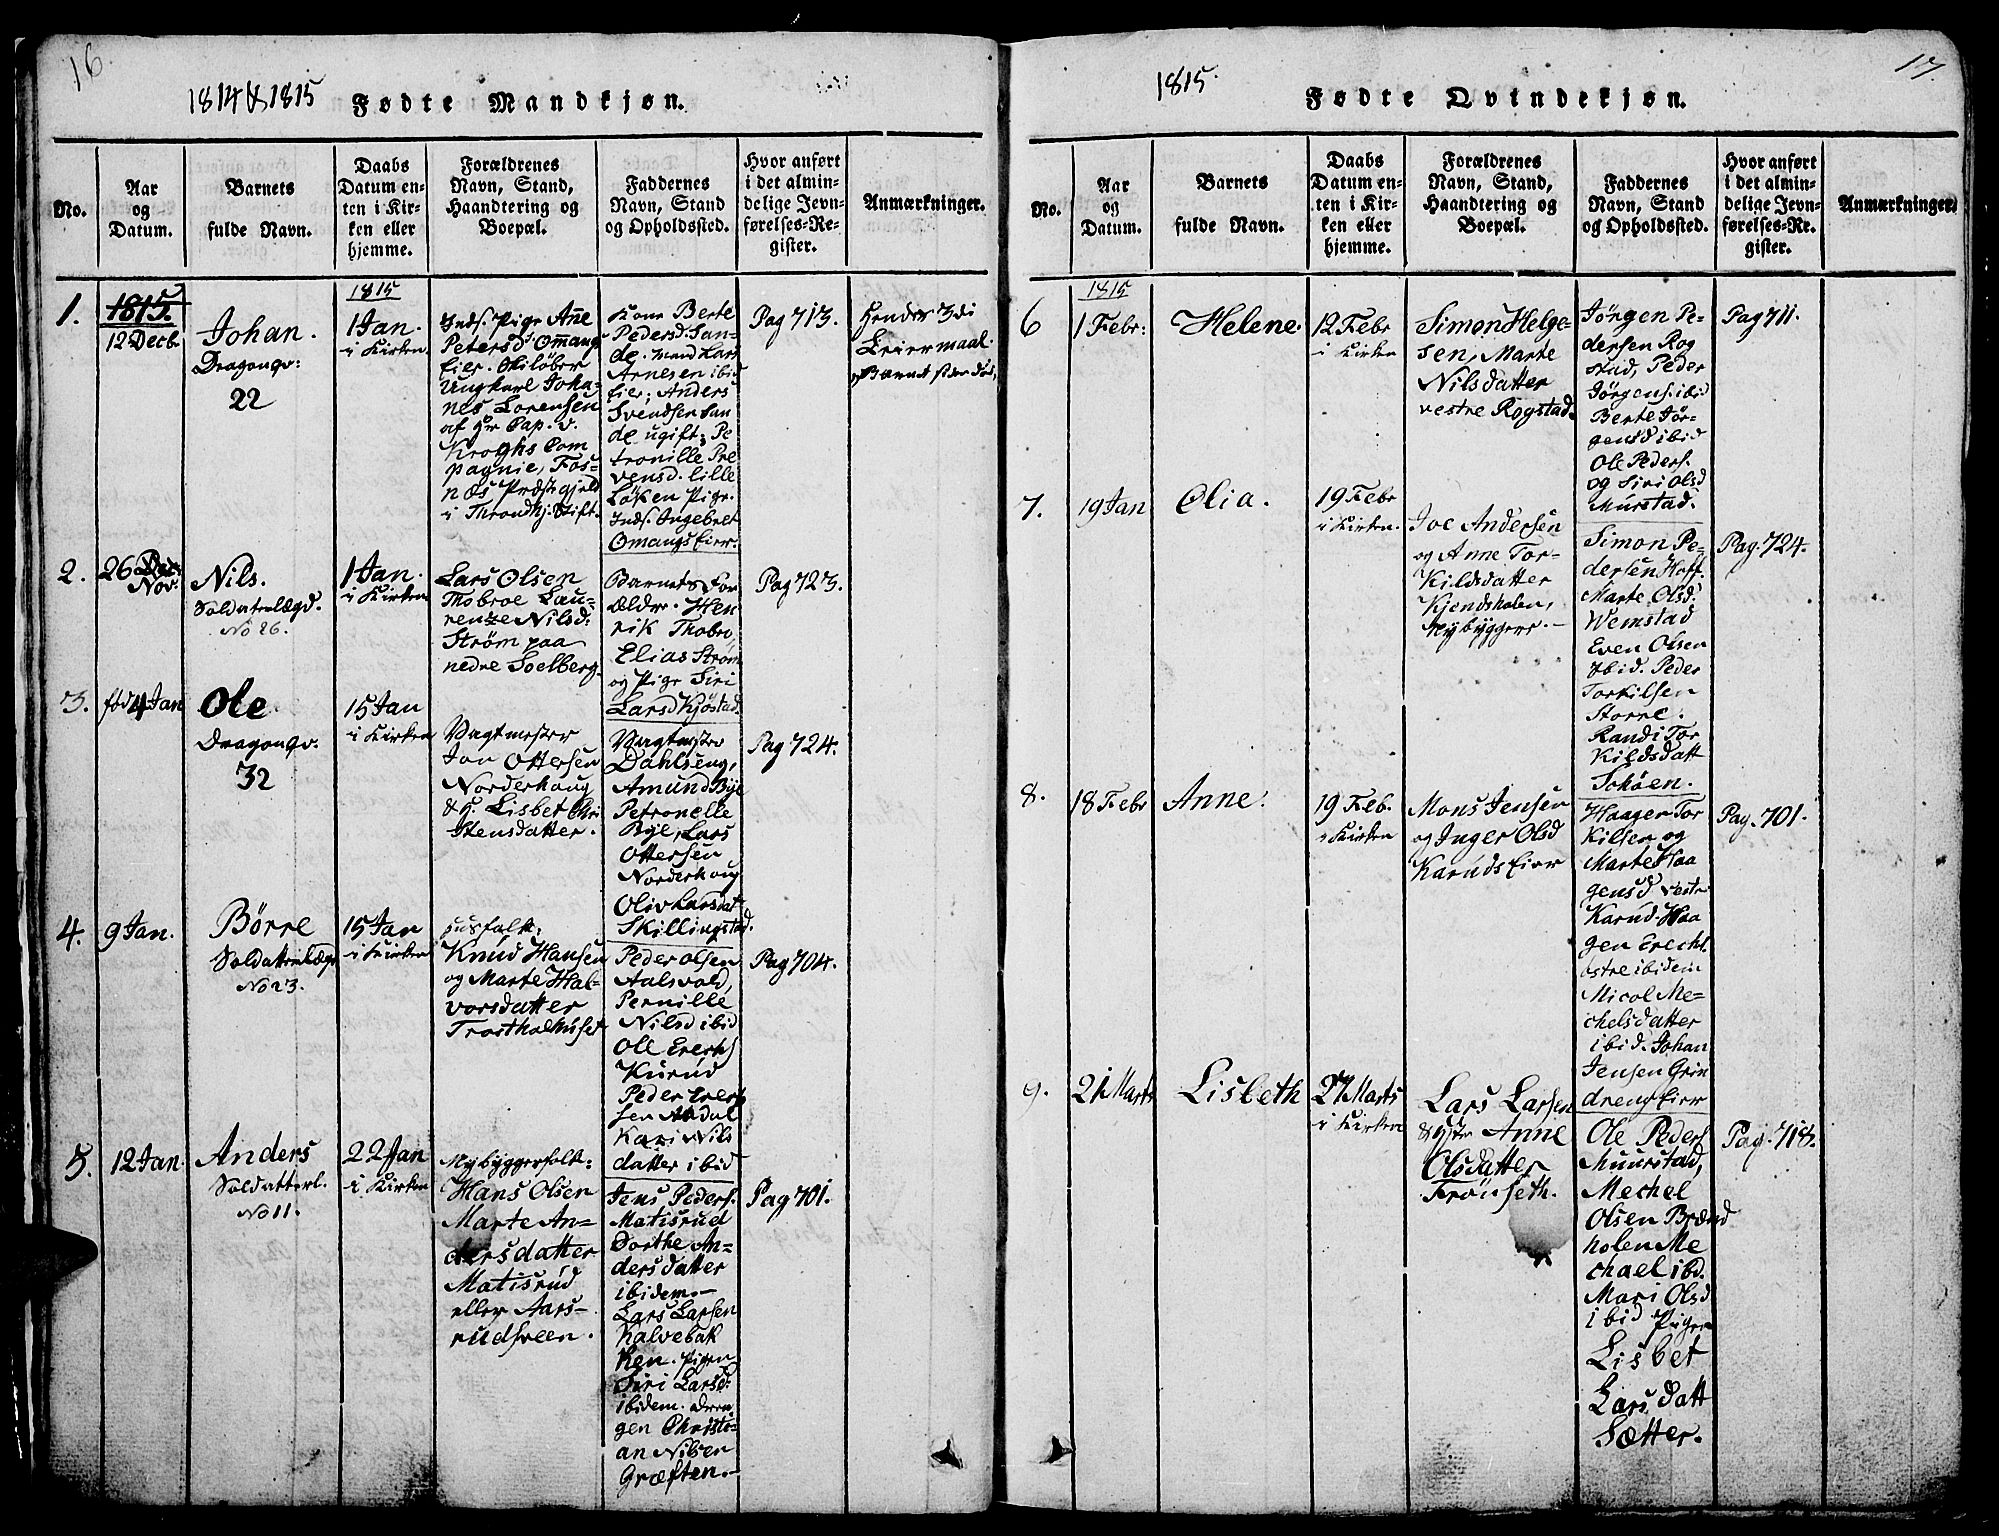 16.
1814 & 1815
Fødte Mandkjøn.
No.
Aar
og
Datum.
Barnets
fulde Navn.
Daabs
Datum en-
ten i Kir-
ken eller
hjemme.
Forældrenes
Navn, Stand,
Haandtering og
Boepæl.
Faddernes
Navn, Stand
og Opholdssted.
Hvor anført
i det almin-
delige Jevn-
førelses-Re-
gister.
Anmærkninger.
1.
1815.
12 Decb.
Johan.
Dragonqv:
22
1815
1 Jan.
i Kirken.
Inds. Pige Añe
Petersd Omang
Eier. Skiløber
Ungkarl Joha-
nes Lorensen
af Hr Cap. v.
Kroghs Com
pagnie, Fos-
næs Præstegjeld
i Throndhj. Stift.
Kone Berte
Pedersd. San-
de. Mand Lars
Arnesen ibid
Eier; Anders
Svendsen San
de ugift; Pe
tronille Pre
vensd. lille
Løken Pige.
Inds. Ingebret
Omangs Eier.
Pag 713.
Hendes 3di
Leiermaal.
2.
26 Dec:
Nov.
Nils.
Soldaterlægd.
No 26.
1 Jan.
i Kirken
Lars Olsen
Thobroe Lau-
rentze Nilsd:
Strøm paa
nedre Soelberg.
Barnets For
ældre. Hen
rik Thobro,
Elias Strøm
og Pige Siri
Larsd Kjøstad.
Pag 723.
3.
fød 4 Jan
Ole
Dragonqv.
32
15 Jan
i Kirken
Vagtmester
Jon Ottersen
Norderhoug
& H. Lisbet Chri
stensdatter.
Vagtmester
Dahlseng,
Amund Bye
Petronelle
Bye, Lars
Ottersen
Norderhoug
Oliv Larsdat
Skillingstad.
Pag 724.
4.
9 Jan.
Børre
Soldatterlægd
No 23.
15 Jan
i Kirken
Husfolk:
Knud Hansen
og Marte Hal-
vorsdatter
Trostholhuset
Peder Olsen
Aalsvold,
Pernille
Nilsd ibid
Ole Erechs
Kurud
Peder Erech
sen
Kari Nils
datter ibid
Pag 704.
5.
12 Jan.
Anders
Soldatterl.
No 11.
22 Jan
i Kirken
Nybyggerfolk:
Hans Olsen
Marte An-
dersdatter
Matisrud
eller Aars-
rudsveen.
Jens Peders.
Matisrud
Dorthe An-
dersdatter
ibidem.-
Lars Larsen
Kalvebak
ken. Pigen
Siri Larsd:
ibidem. Dren
gen Christi-
an Nilsen
Græften.-
Pag 701.
17.
1815.
Fødte Qvindekjøn.
No.
Aar
og
Datum.
Barnets
fulde Navn.
Daabs
Datum en-
ten i Kir-
ken eller
hjemme.
Forældrenes
Navn, Stand,
Haandtering og
Boepæl.
Faddernes
Navn, Stand
og Opholdssted.
Hvor anført
i det almin-
delige Jevn-
førelses-Re-
gister.
Anmærkninger.
6
1815
1 Febr:
Helene.
12 Febr
i Kirken
Simon Helge-
sen, Marte
Nilsdatter
vestre Rogstad.
Jørgen Pe-
dersen Rog
stad, Peder
Jørgens. ibid
Berte Jør-
gensd ibid
Ole Peders.
og Siri Olsd
Murstad.
Pag 711.
7.
19 Jan
Olia.
19 Febr
i Kirken.
Joe Andersen
og Anne Tor-
kildsdatter
Kjendsholen,
Nybyggere.-
Simon Pe-
dersen Hoff.
Marte Olsd.
Wemstad
Even Olsen
ibid. Peder
Torkilsen
Storre.
Randi Tor
kildsdatt
Sohøen.
Pag. 724.
8.
18 Febr
Anne.
19 Feb.
i Kirken
Mons Jensen
og Inger Olsd
Karuds Eier
Haagen Tor
kilsen og
Marte Haa
gensd vestre
Karud. Haa
gen Erechs.
østre ibidem
Micol Me-
chelsdatter
ibid. Johan
Jensen Grin
dreng Eier
Pag. 701.
9.
21 Marts
Lisbeth
27 Marts
i Kirken
Lars Larsen
& Hstr Anne
Olsdatter
Frønseth.
Ole Peders
Muurstad,
Mechel
Olsen Brænd
holen Me
chael ibd.
Mari Olsd
ibid Pigen
Lisbet
Larsdatt
Sætter.
Pag. 718.